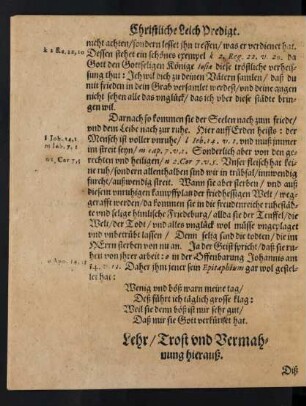 Christliche Leich Predigt.
nicht achten/ sondern lesset jhn treffen/ was er verdienet hat.
Dessen stehet ein schönes exempel à 2. Reg. 22. v. 20. da
Gott den Gottseligen Könige Iosiæ diese tröstliche ver-
heisung thut: Ich wil dich zu deinen Vätern samlen/ daß du
mit frieden in dein Grab versamlet werdest/ vnd deine augen
nicht sehen alle das vnglück/ das ich vber diese städte brin-
gen wil.
Darnach so kommen sie der Seelen nach zum friede/
vnd dem Leibe nach zur ruhe. Hier auff Erden heists: der
Mensch ist voller vnruhe/ 1 Iob, 14. v. 1. vnd muß jmmer
im streit seyn/ m 1 c.7. v.1. Sonderlich aber von den ge-
rechten vnd heiligen/ n 2. Cor 7. v. 5. Vnser fleisch hat kei-
ne ruh/ sondern allenthalben sind wir in trübsal/ inwendig
furcht/ auswendig streit. Wann sie aber sterben/ vnd aus
diesem vnruhigen kampffplan der friedhessigen Welt/ weg-
gerafft werden/ da kommen sie in die freudenreiche ruhestäd-
te vnd selige himlische Friedeburg/ allda sie der Teuffel/ die
Welt/ der Todt/ vnd alles vnglück wol müssen vngeplaget
vnd vnbetrübt lassen/ Denn selig sind die todten/ die im
HErrn sterben von nu an. Ja der Geist spricht/ daß sie ru-
hen von jhrer arbeit: o in der Offenbarung Johannis am
14. v. 13. Daher jhm jener sein Epitaphium gar wol gestel-
let hat:
Wenig vnd böß warn meine tag/
Deß führt ich täglich grosse klag:
Weil sie denn böß ist mir sehr gut/
Daß mir sie Gott verkürtzet hat.
Lehr/ Trost vnd Vermah-
nung hierauß.
Diß